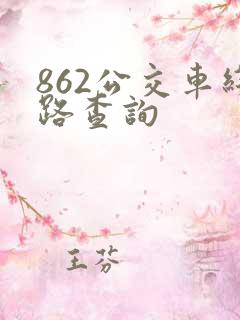 862公交車線
路查詢
王芬